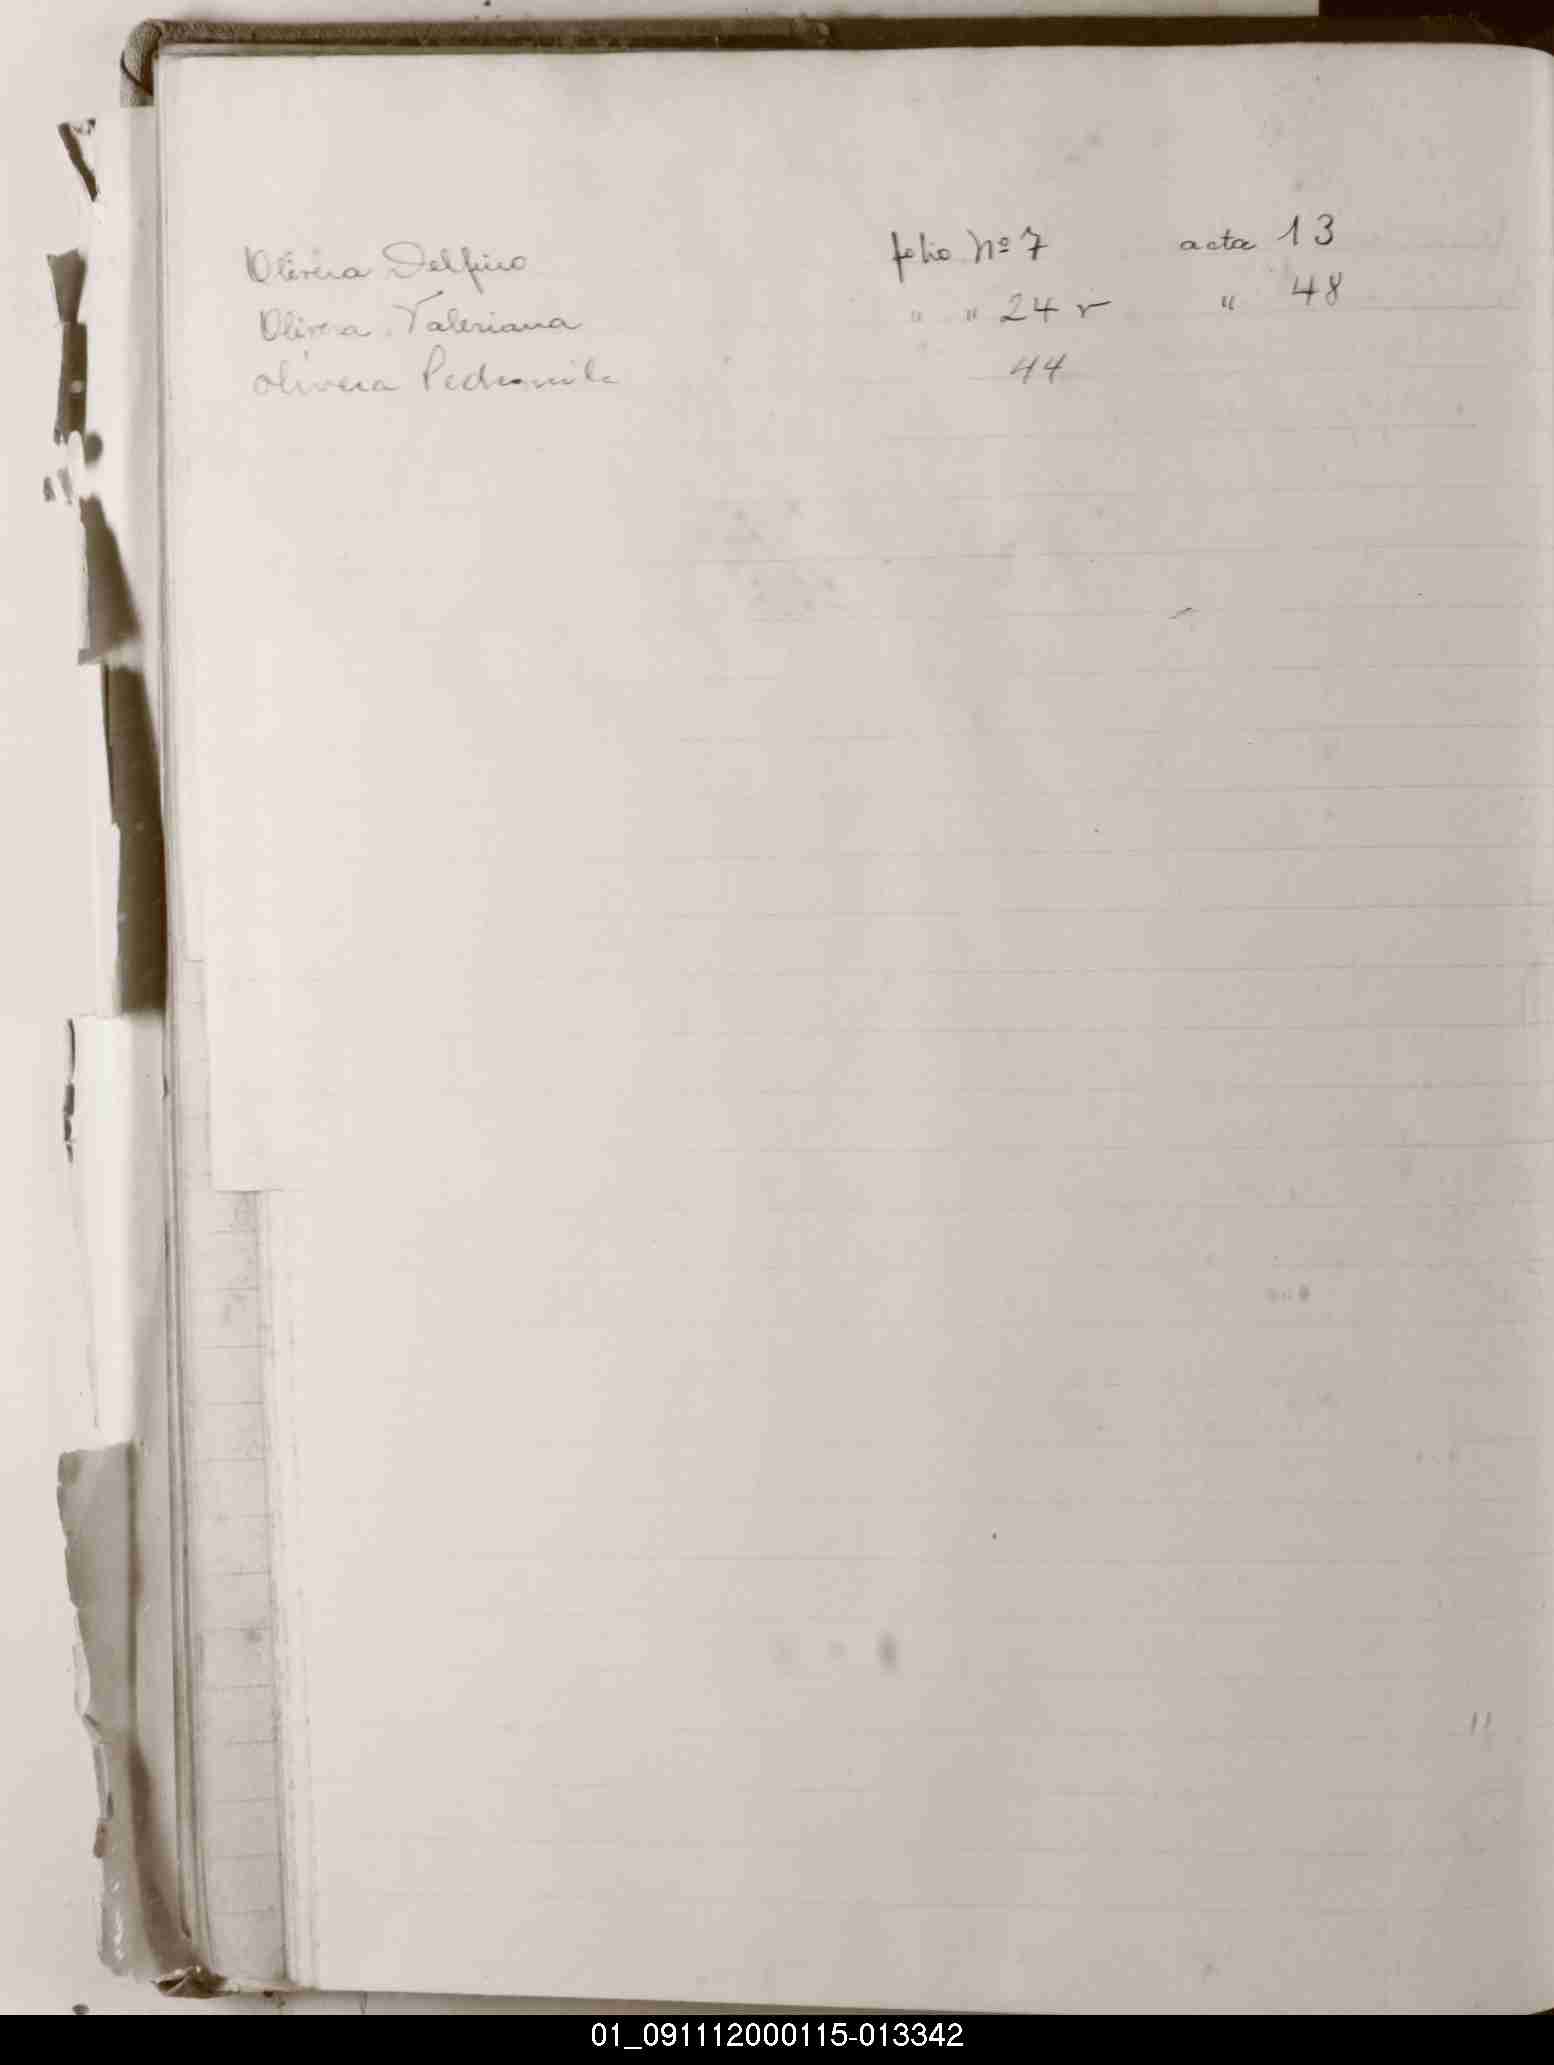 Olivera Delfino folio Nº 7 acta 13
Olivera Valeriana " " 24 v " 48
Olivera Pedronila 44
01_091112000115-013342